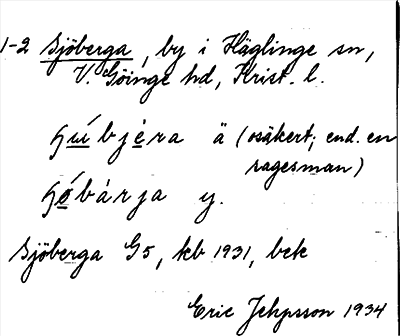 1-2 Sjöberga, by i Häglinge sn,
V. Göinge hd, Krist. l.
ɧú̲bje̲ra ä (osäkert; end. en
sagesman)
ɧó̲bàrja y.
Sjöberga G5, kb 1931, bek
Eric Jehpsson 1934